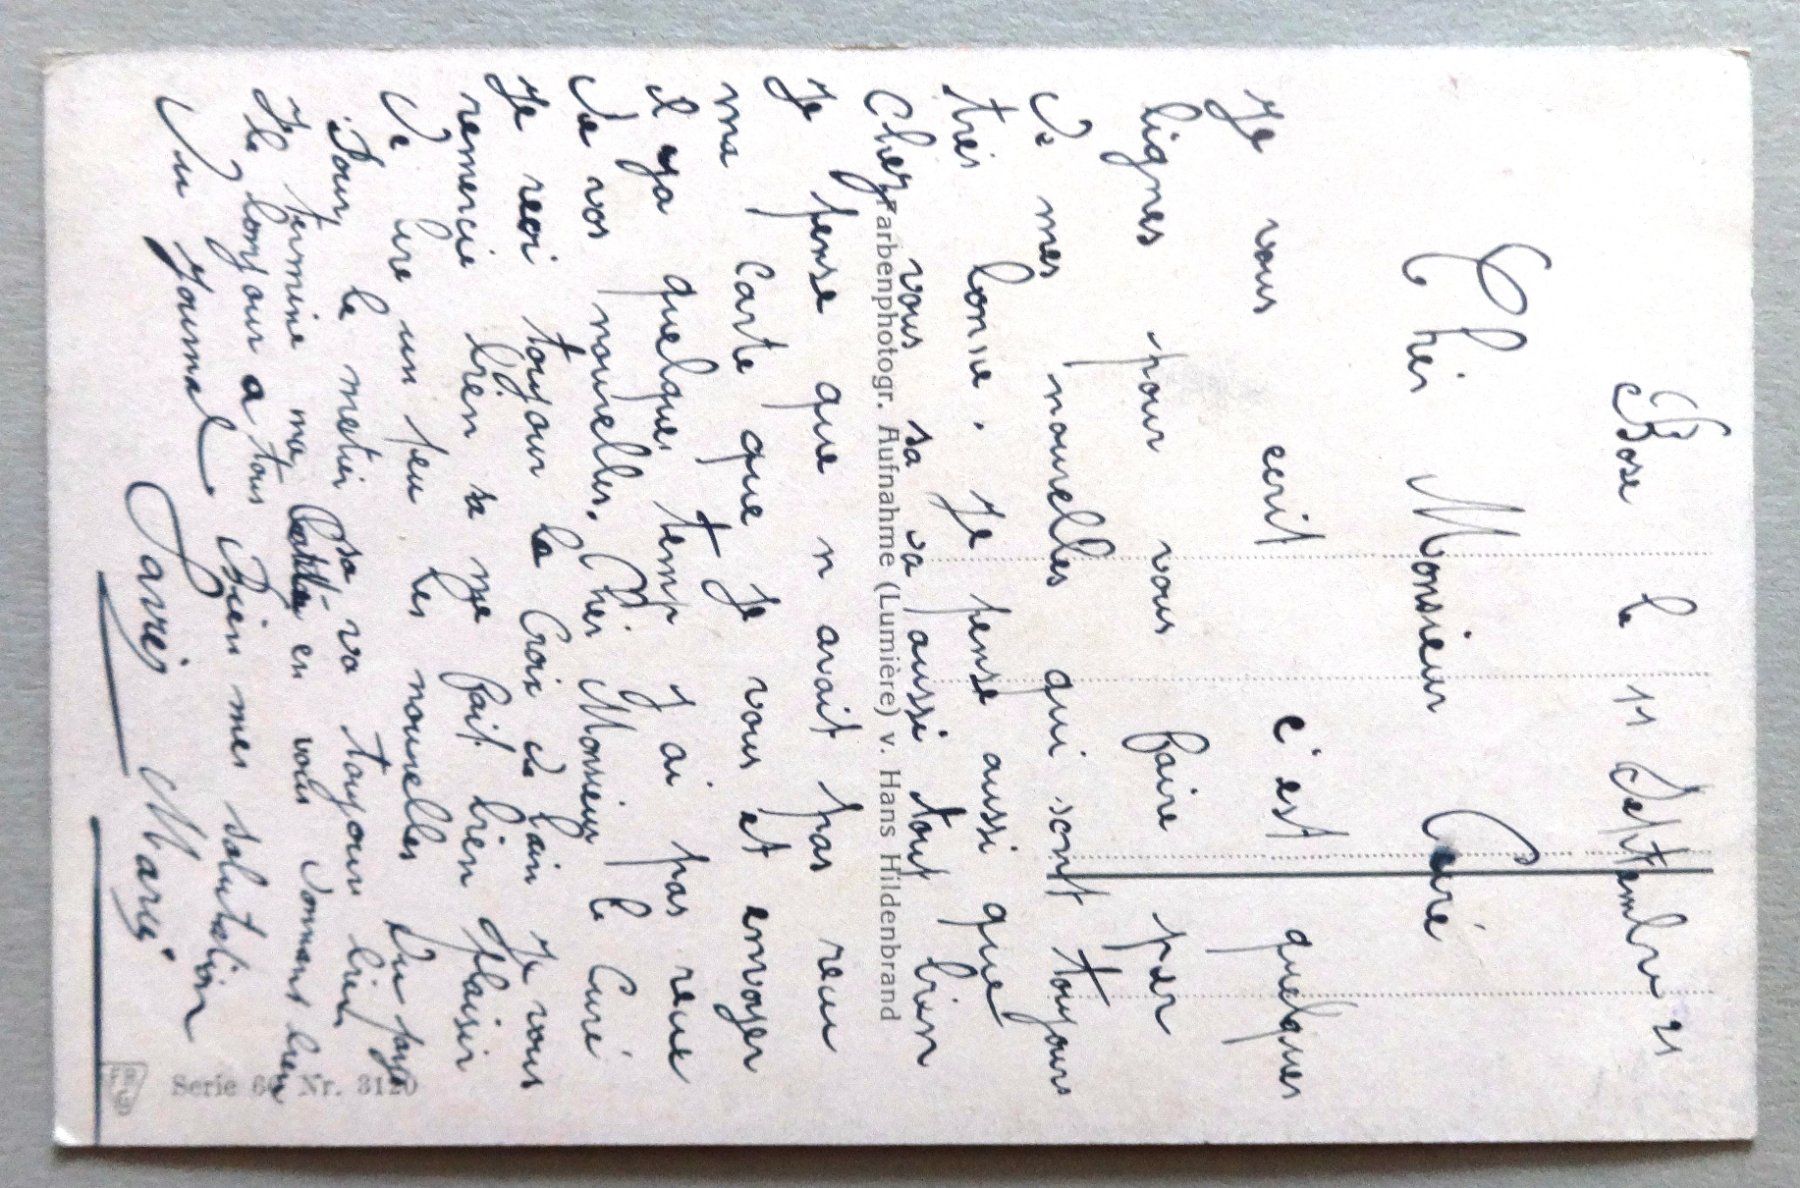 Bose le 11 Septembre 21
Cher Monsieur Curé
Je vous ecrit c'est quelques
lignes pour vous faire par
De mes nouvelles qui sont toujours
tres bonne. Je pense aussi que
Chez vous sa va aussi tout bien
Je pense que n avait pas reçu
ma Carte que Je vous et envoyer
il ya quelques temp J ai pas reçue
De vos nouvelles. Cher Monsieur le Curé
Je reci toujour la Croix de lain Je vous
remercie bien sa me fait bien plaisir
De lire un peu les nouvelles Du pays
Pour le metier sa va toujour bien
Je termine ma en vous Donnans bien
le bonjour a tous Bien mes salutation
Du Journal.
Javrei Marius
Farbenphotogr. Aufnahme (Lumière) v. Hans Hildenbrand
Serie Nr. 3120